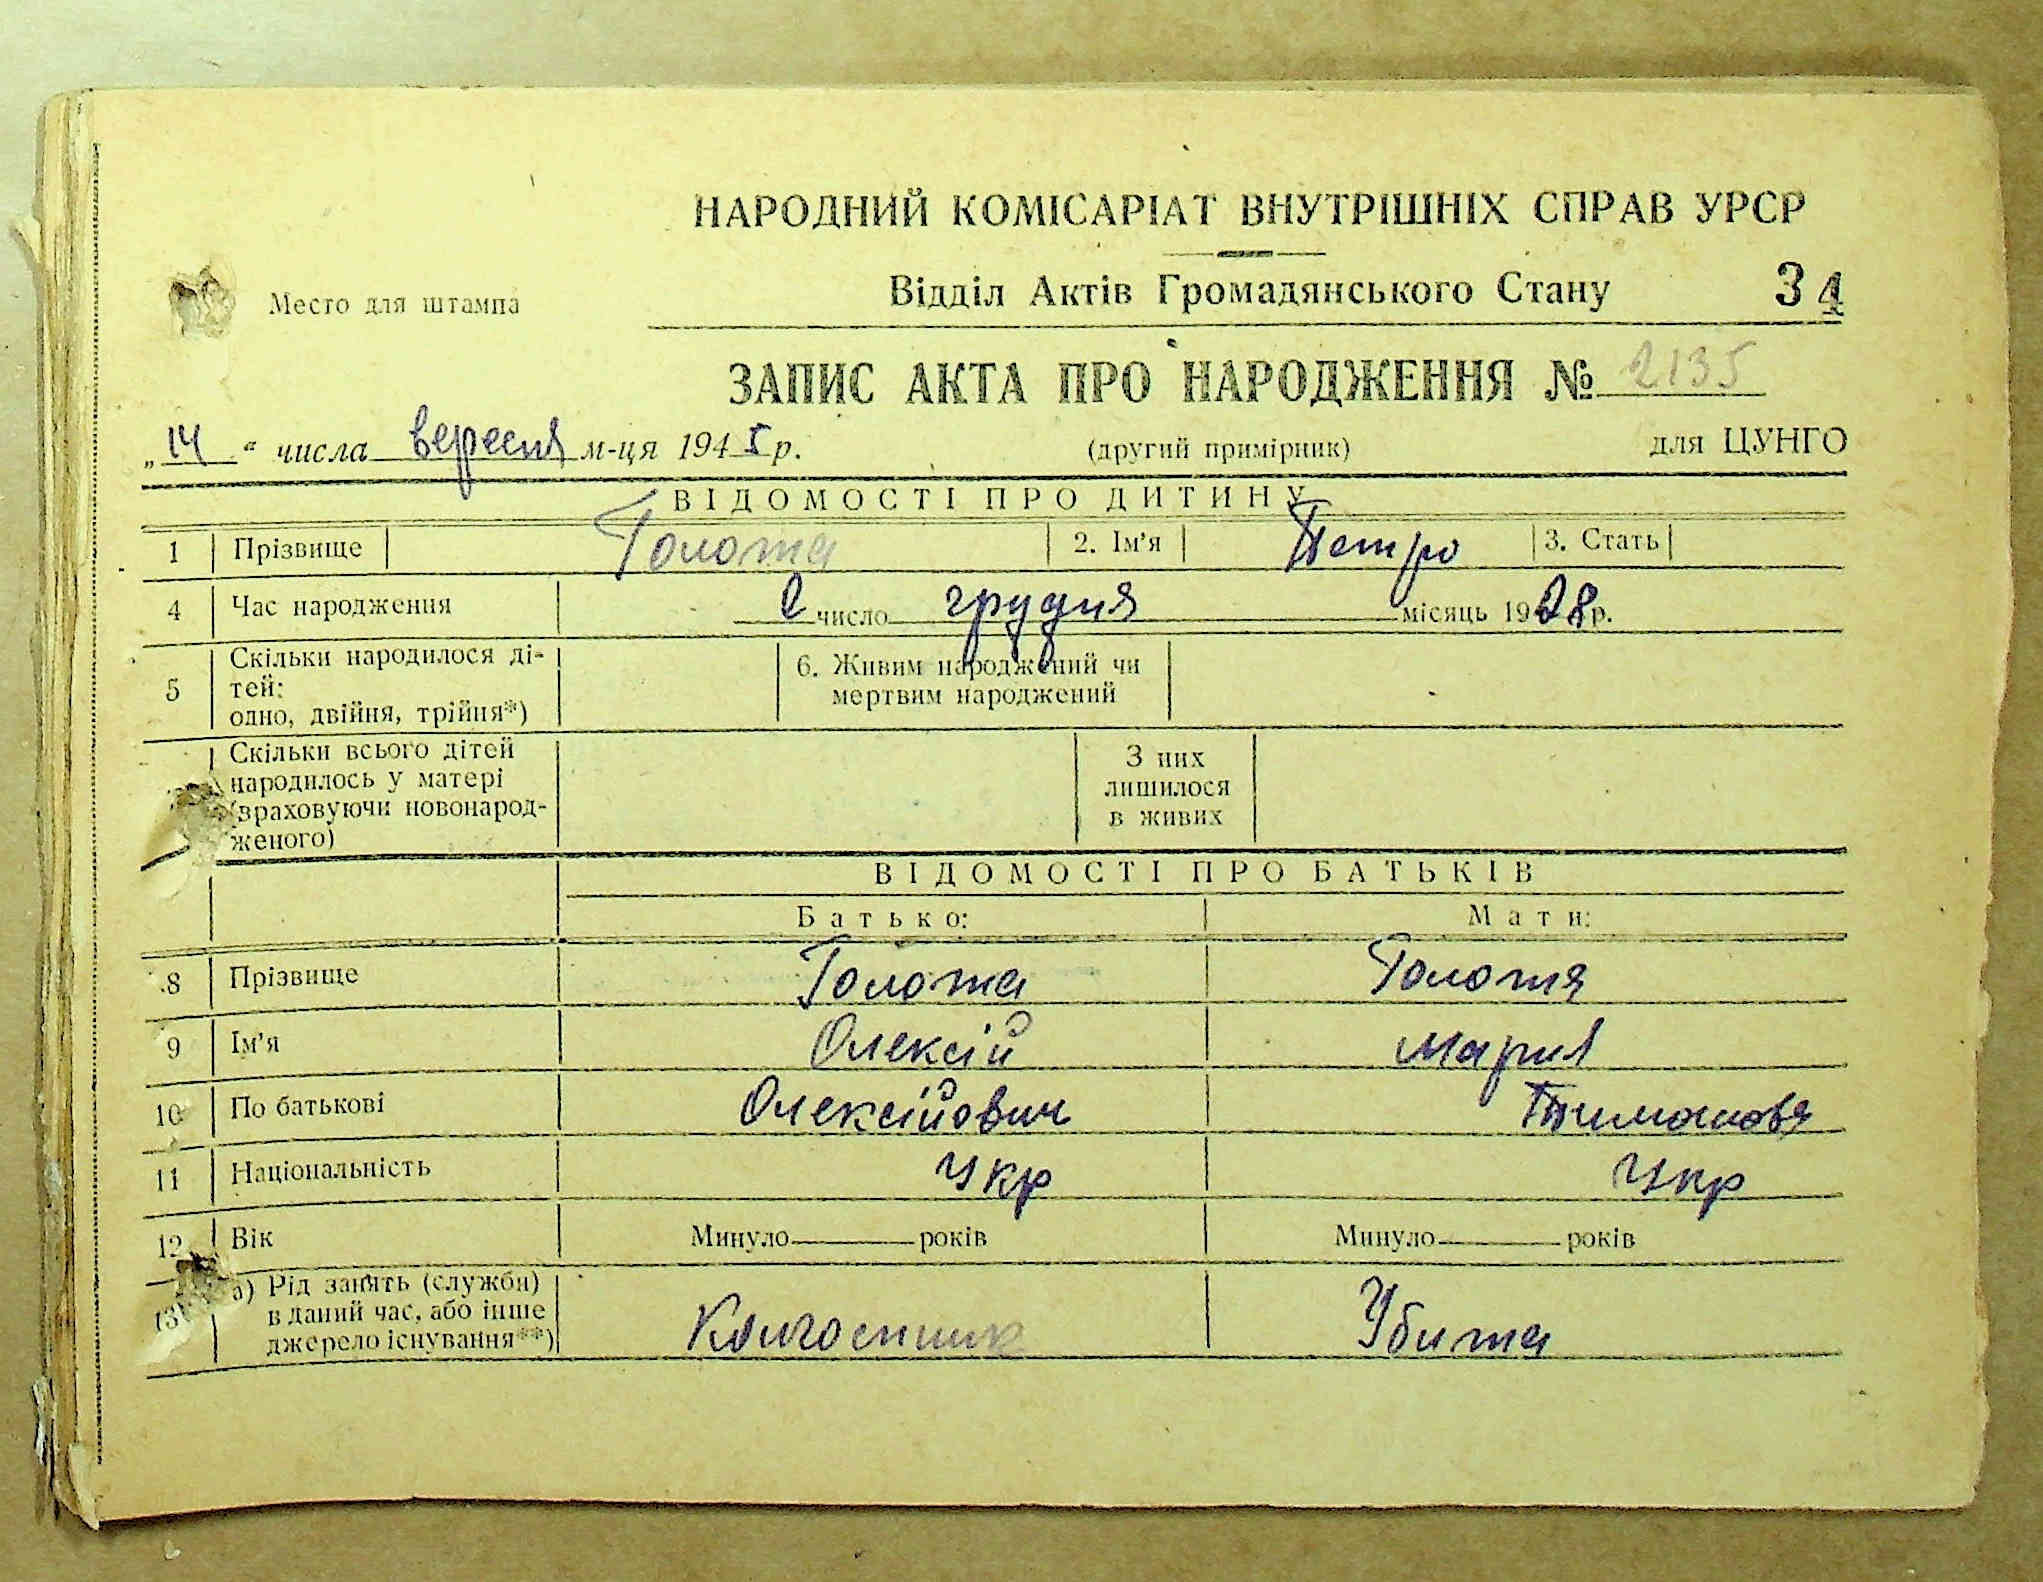 НАРОДНИЙ КОМІСАРІАТ ВНУТРІШНІХ СПРАВ УРСР
Место для штампа
Відділ Актів Громадянського Стану
34
ЗАПИС АКТА ПРО НАРОДЖЕННЯ № 2135
„14“ числа вересня м-ця 1945 р.
(другий примірник)
для ЦУНГО
ВІДОМОСТІ ПРО ДИТИНУ
1 Прізвище Голота 2. Ім'я Петро 3. Стать
4 Час народження 2 число грудня місяць 1928 р.
5 Скільки народилося ді-
тей:
одно, двійня, трійня*)
6. Живим народжений чи
мертвим народжений
Скільки всього дітей
народилось у матері
(враховуючи новонарод-
женого)
З них
лишилося
в живих
ВІДОМОСТІ ПРО БАТЬКІВ
Батько: Мати:
8 Прізвище Голота Голота
9 Ім'я Олексій Мария
10 По батькові Олексійович
11 Національність Укр Укр
12 Вік Минуло років Минуло років
13 а) Рід занять (служби)
в даний час, або інше
джерело існування**)
Колгоспник Убита